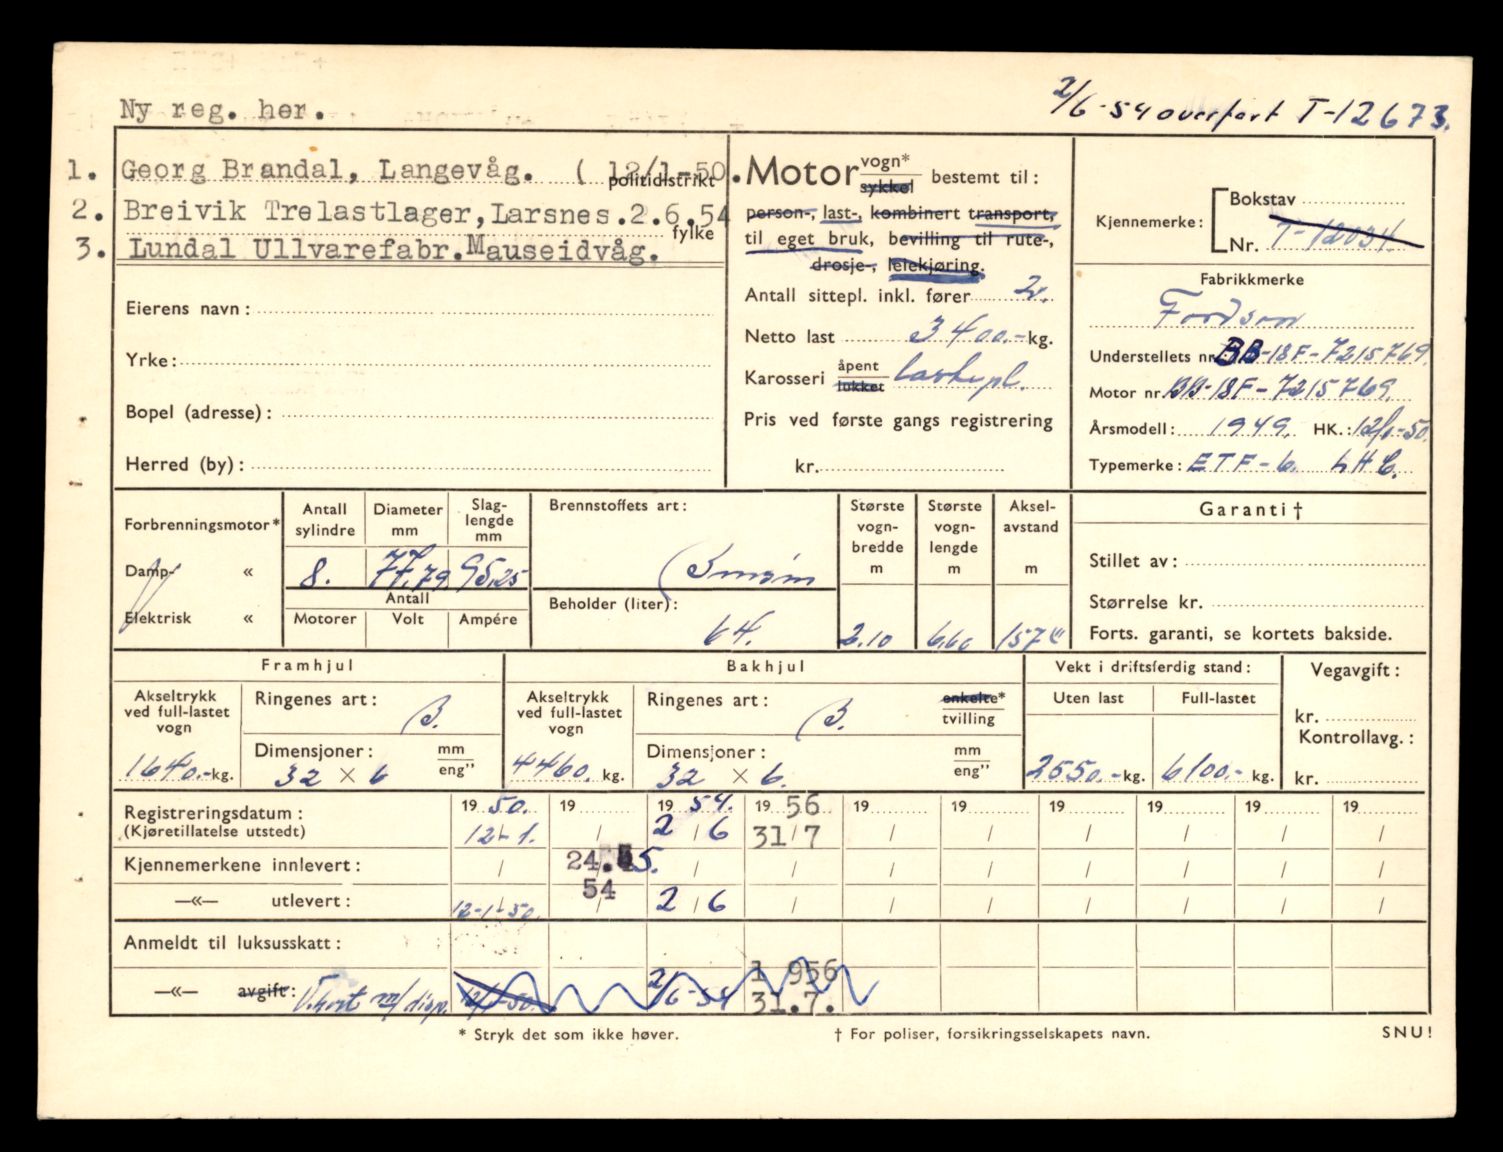 Ny reg. her.
2/6-54 overført T-12673.
1. Georg Brandal, Langevåg. ( 12/1-50.
politidistrikt
2. Breivik Trelastlager, Larsnes. 2.6.54
fylke
3. Lundal Ullvarefabr. Mauseidvåg.
Eierens navn:
Yrke:
Bopel (adresse):
Herred (by):
Motor vogn* sykkel bestemt til:
person-, last-, kombinert transport,
til eget bruk, bevilling til rute-,
drosje-, leiekjøring.
Antall sittepl. inkl. fører 2.
Netto last 3400.- kg.
Karosseri åpent lukket lastepl.
Pris ved første gangs registrering
kr.
Kjennemerke: Bokstav
Nr. T-12034.
Fabrikkmerke
Fordson
Understellets nr. BB-18F-7215769.
Motor nr. BB-18F-7215769.
Årsmodell: 1949. HK.: 12/1-50.
Typemerke: ETF-6. LHC.
Forbrenningsmotor*
Damp- «
Elektrisk «
Antall sylindre
8.
Diameter mm
77.79
Slaglengde mm
95.25
Antall
Motorer Volt Ampére
Brennstoffets art:
Bensin
Beholder (liter):
64.
Største vognbredde m
2.10
Største vognlengde m
6.60
Akselavstand m
157"
Garanti †
Stillet av:
Størrelse kr.
Forts. garanti, se kortets bakside.
Framhjul
Akseltrykk ved full-lastet vogn
1640.- kg.
Ringenes art: B.
Dimensjoner: mm eng"
32 × 6
Bakhjul
Akseltrykk ved full-lastet vogn
4460. kg.
Ringenes art: B. enkelte* tvilling
Dimensjoner: mm eng"
32 × 6.
Vekt i driftsferdig stand:
Uten last Full-lastet
2550.- kg. 6100.- kg.
Vegavgift:
kr.
Kontrollavg.:
kr.
Registreringsdatum: 19 50. 19 19 54. 19 56 19 19 19 19 19 19
(Kjøretillatelse utstedt) 12-1. / 2/6 31/7 / / / / / /
Kjennemerkene innlevert: / 24.5. / / / / / / / /
—«— utlevert: 12-1-50. 54 2/6 / / / / / / /
Anmeldt til luksusskatt:
—«— avgift: V.kort m/disp. 12/1-50. 2/6-54 1 956 31.7.
* Stryk det som ikke høver.
† For poliser, forsikringsselskapets navn.
SNU!